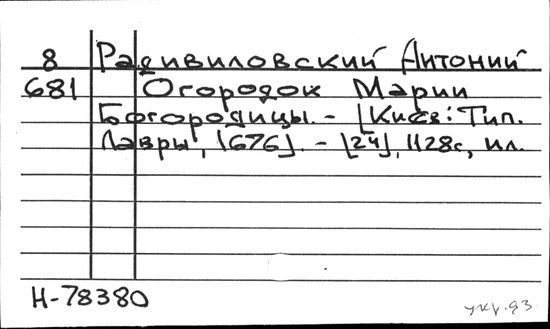 8 Радивиловский Антоний
681 Огородок Марии
Богородицы. - [Киев: Тип.
Лавры, 1676]. - [24], 1128с, ил.
Н-78380
укр.93